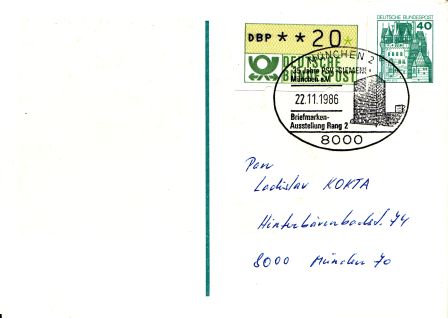 DBP **20*
DEUTSCHE
BUNDESPOST
DEUTSCHE BUNDESPOST
40
MÜNCHEN 2
München e.V.
22.11.1986
Briefmarken-
Ausstellung Rang 2
8000
Ladislav KOKTA
Hinterbärenbadstr. 74
8000 München 70